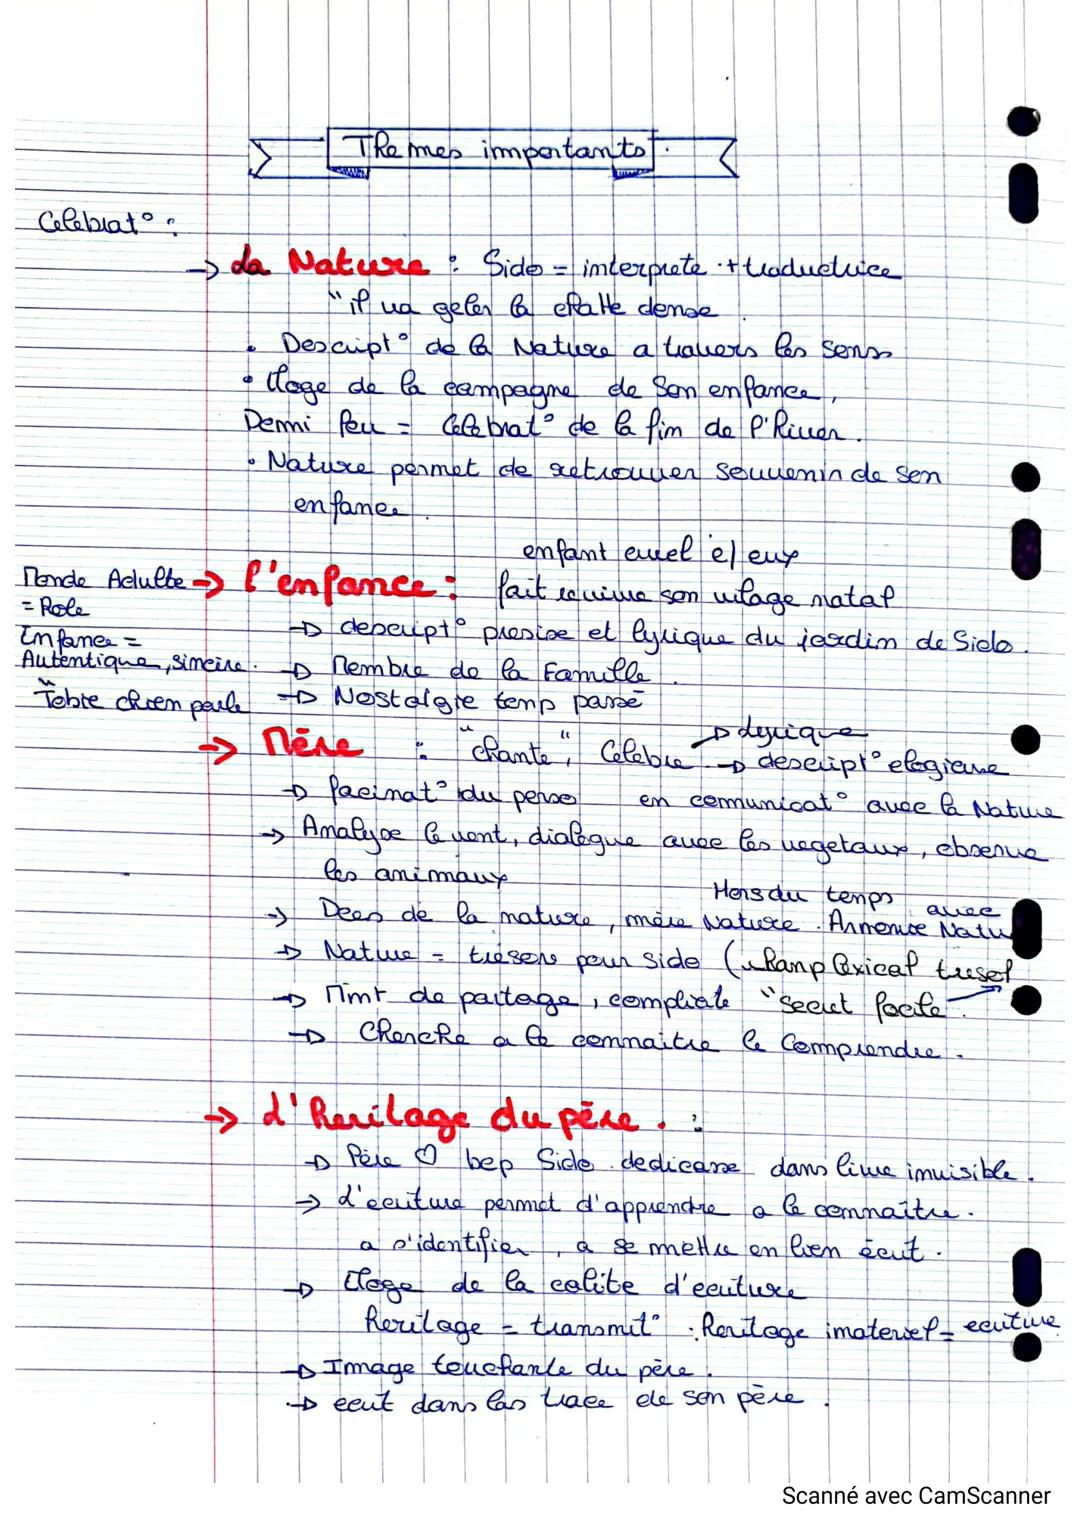 Themes importants.
Celebrat° :
→ La Nature : Sido = interprete + traductrice
"il va geler la chatte dense
• Descript° de la Nature a travers les senss
• Eloge de la campagne de son enfance,
Demi feu = Celebrat° de la fin de l'hiver.
• Nature permet de retrouver souvenir de sen
enfance.
enfant cruel e/ eux
Monde Adulte → l'enfance : fait revivre son vilage natal
= Role
→ descript° presise et lyrique du jardin de Sido.
Enfance =
Autentique, sincire. → Membre de la Famille.
"Tobie chien parle → Nostalgie temp passé
→ Mère : "chante", Celebre → lyrique
→ descript° elogieuse
→ facinat° du perso en comunicat° avec la Nature
→ Analyse le vent, dialogue avec les vegetaux, observe
les animaux
Hors du temps
→ Dees de la nature, mère Nature. Armonie avec Natu
→ Nature = trésore pour Sido (champ lexical tresor
→ Mmt de partage, compliate "secret facile".
→ Cherche a la connaitre le Comprendre.
→ L'heritage du père. :
→ Père ♡ bcp Sido dedicasse dans livre invisible.
→ L'écriture permet d'apprendre a le connaître.
a s'identifier, a se mettre en lien écrit.
→ Eloge de la calite d'ecriture
heritage = transmit°. heritage imateriel = ecriture
→ Image touchante du père.
→ ecrit dans las trace de son père.
Scanné avec CamScanner